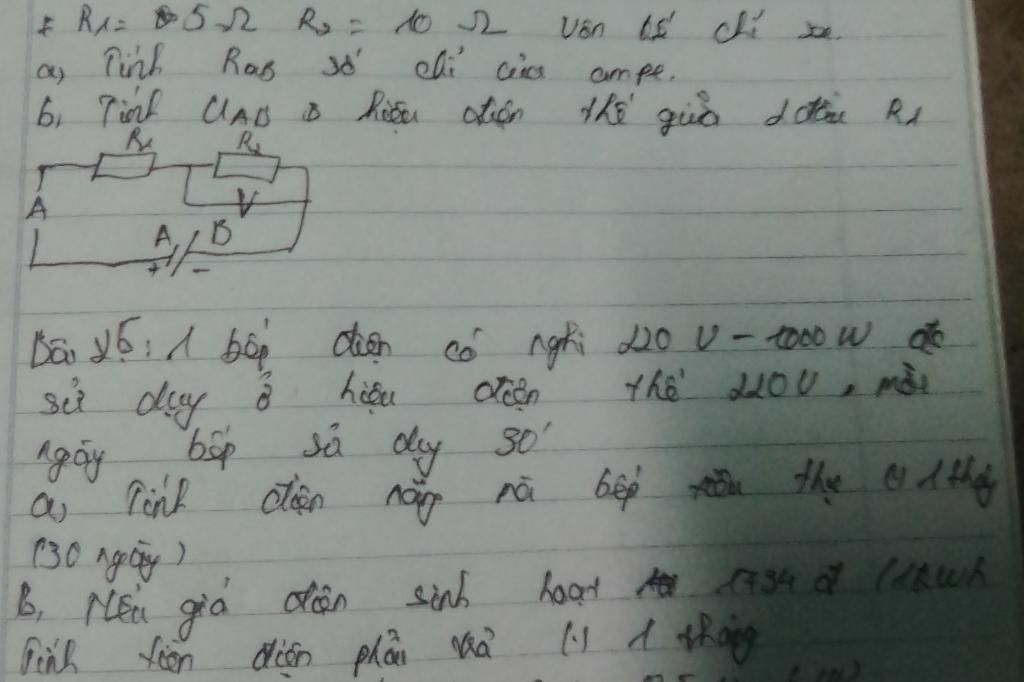 R1= 5 Ω R2 = 10 Ω Vôn kế chỉ
a, Tính RAB số chỉ của ampe.
b, Tính UAB hiệu điện thế giữa 2 đầu R1
R1 R2
V
A
A B
+ -
Bài 25: 1 bếp điện có nghi 220 V - 1000 W đc
sử dụng ở hiệu điện thế 220V, mỗi
ngày bếp sử dụng 30'
a, Tính điện năng mà bếp tiêu thụ (.) 1 tháng
(30 ngày)
B, Nếu giá điện sinh hoạt 1734 đ /1kWh
Tính tiền điện phải trả (.) 1 tháng